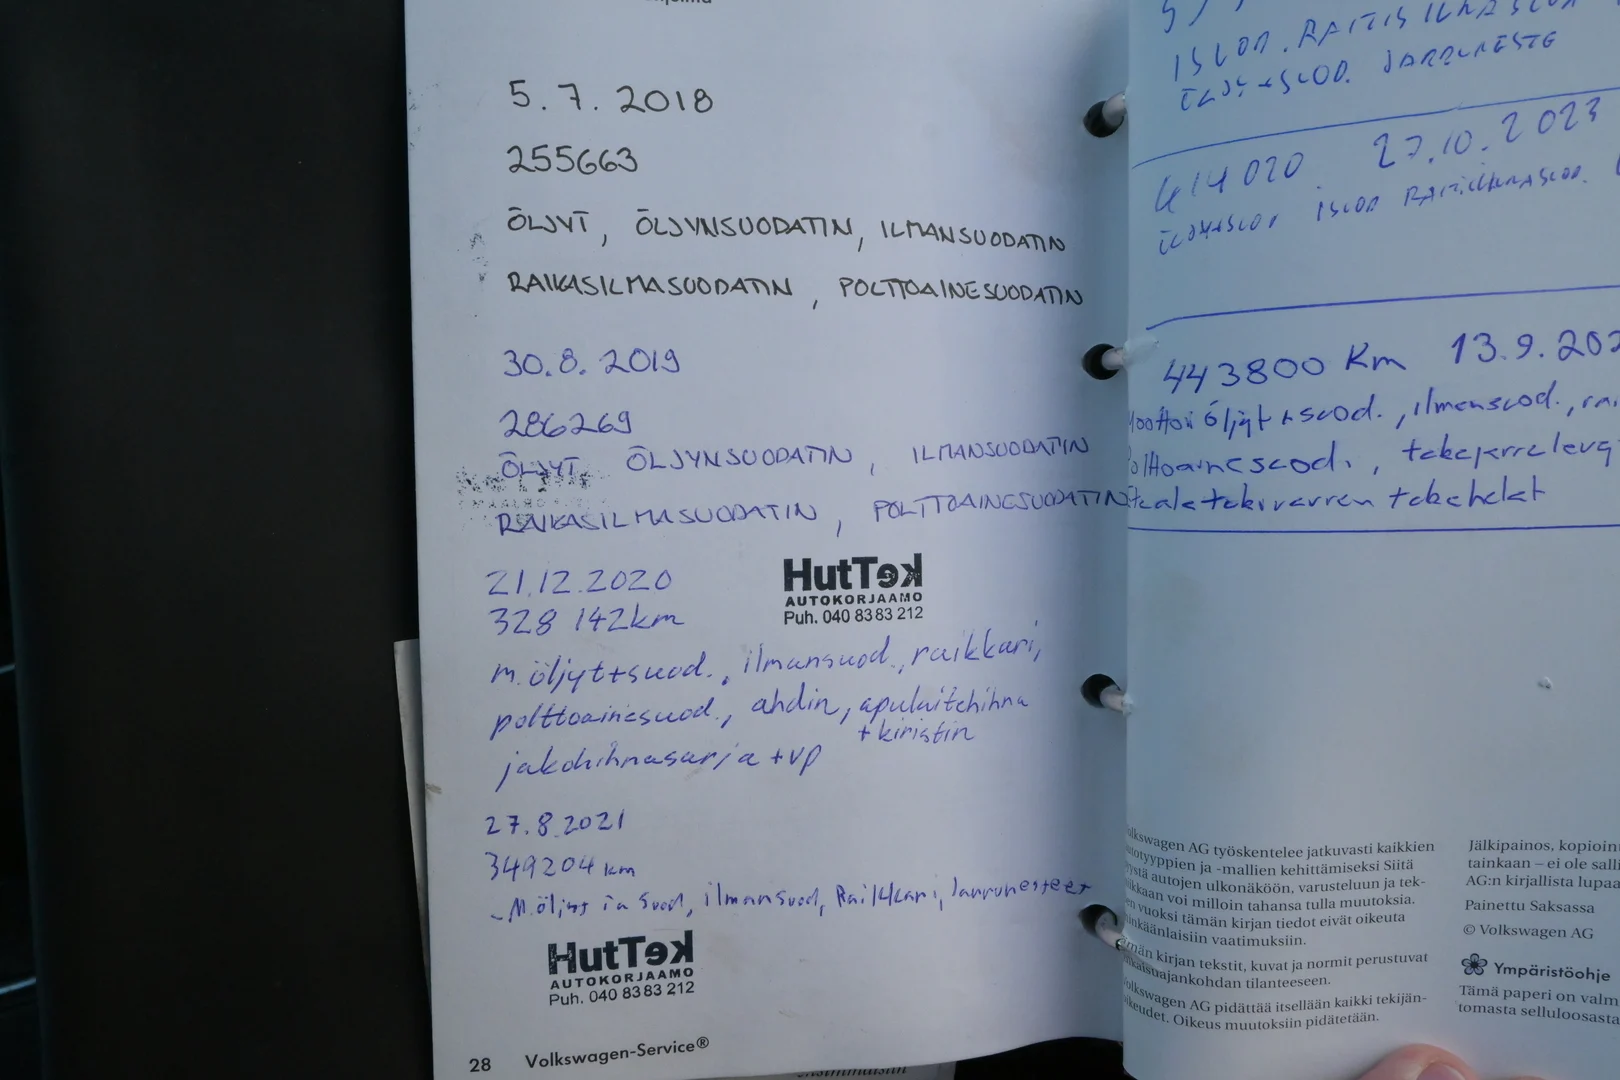 5.7.2018
255663
ÖLJYT, ÖLJYNSUODATIN, ILMANSUODATIN
RAIKASILMASUODATIN, POLTTOAINESUODATIN
30.8.2019
286269
ÖLJYT, ÖLJYNSUODATIN, ILMANSUODATIN
RAIKASILMASUODATIN, POLTTOAINESUODATIN
21.12.2020
328 142km
HutTek
AUTOKORJAAMO
Puh. 040 83 83 212
m.öljyt+suod., ilmansuod., raikkari,
polttoainesuod., ahdin, apulaitehihna
+kiristin
jakohihnasarja +vp
27.8.2021
349204 km
- M.öljyt ja suod, ilmansuod, Raikkari, Jarrunesteet
HutTek
AUTOKORJAAMO
Puh. 040 83 83 212
28 Volkswagen-Service®
ISUOD. RAITISILMASUOD
JARRUNESTE
414020 27.10.2023
ISUOD RAITISILMASUOD.
443800 Km 13.9.202
Moottori öljyt + suod., ilmansuod., rai
Polttoainesuod., takajarrulevy
takahelat
olkswagen AG työskentelee jatkuvasti kaikkien
utotyyppien ja -mallien kehittämiseksi Siitä
ystä autojen ulkonäköön, varusteluun ja tek-
ikkaan voi milloin tahansa tulla muutoksia.
en vuoksi tämän kirjan tiedot eivät oikeuta
inkäänlaisiin vaatimuksiin.
ämän kirjan tekstit, kuvat ja normit perustuvat
ainatusajankohdan tilanteeseen.
olkswagen AG pidättää itsellään kaikki tekijän-
ikeudet. Oikeus muutoksiin pidätetään.
Jälkipainos, kopioin
tainkaan – ei ole salli
AG:n kirjallista lupaa
Painettu Saksassa
© Volkswagen AG
Ympäristöohje
Tämä paperi on valm
tomasta selluloosasta